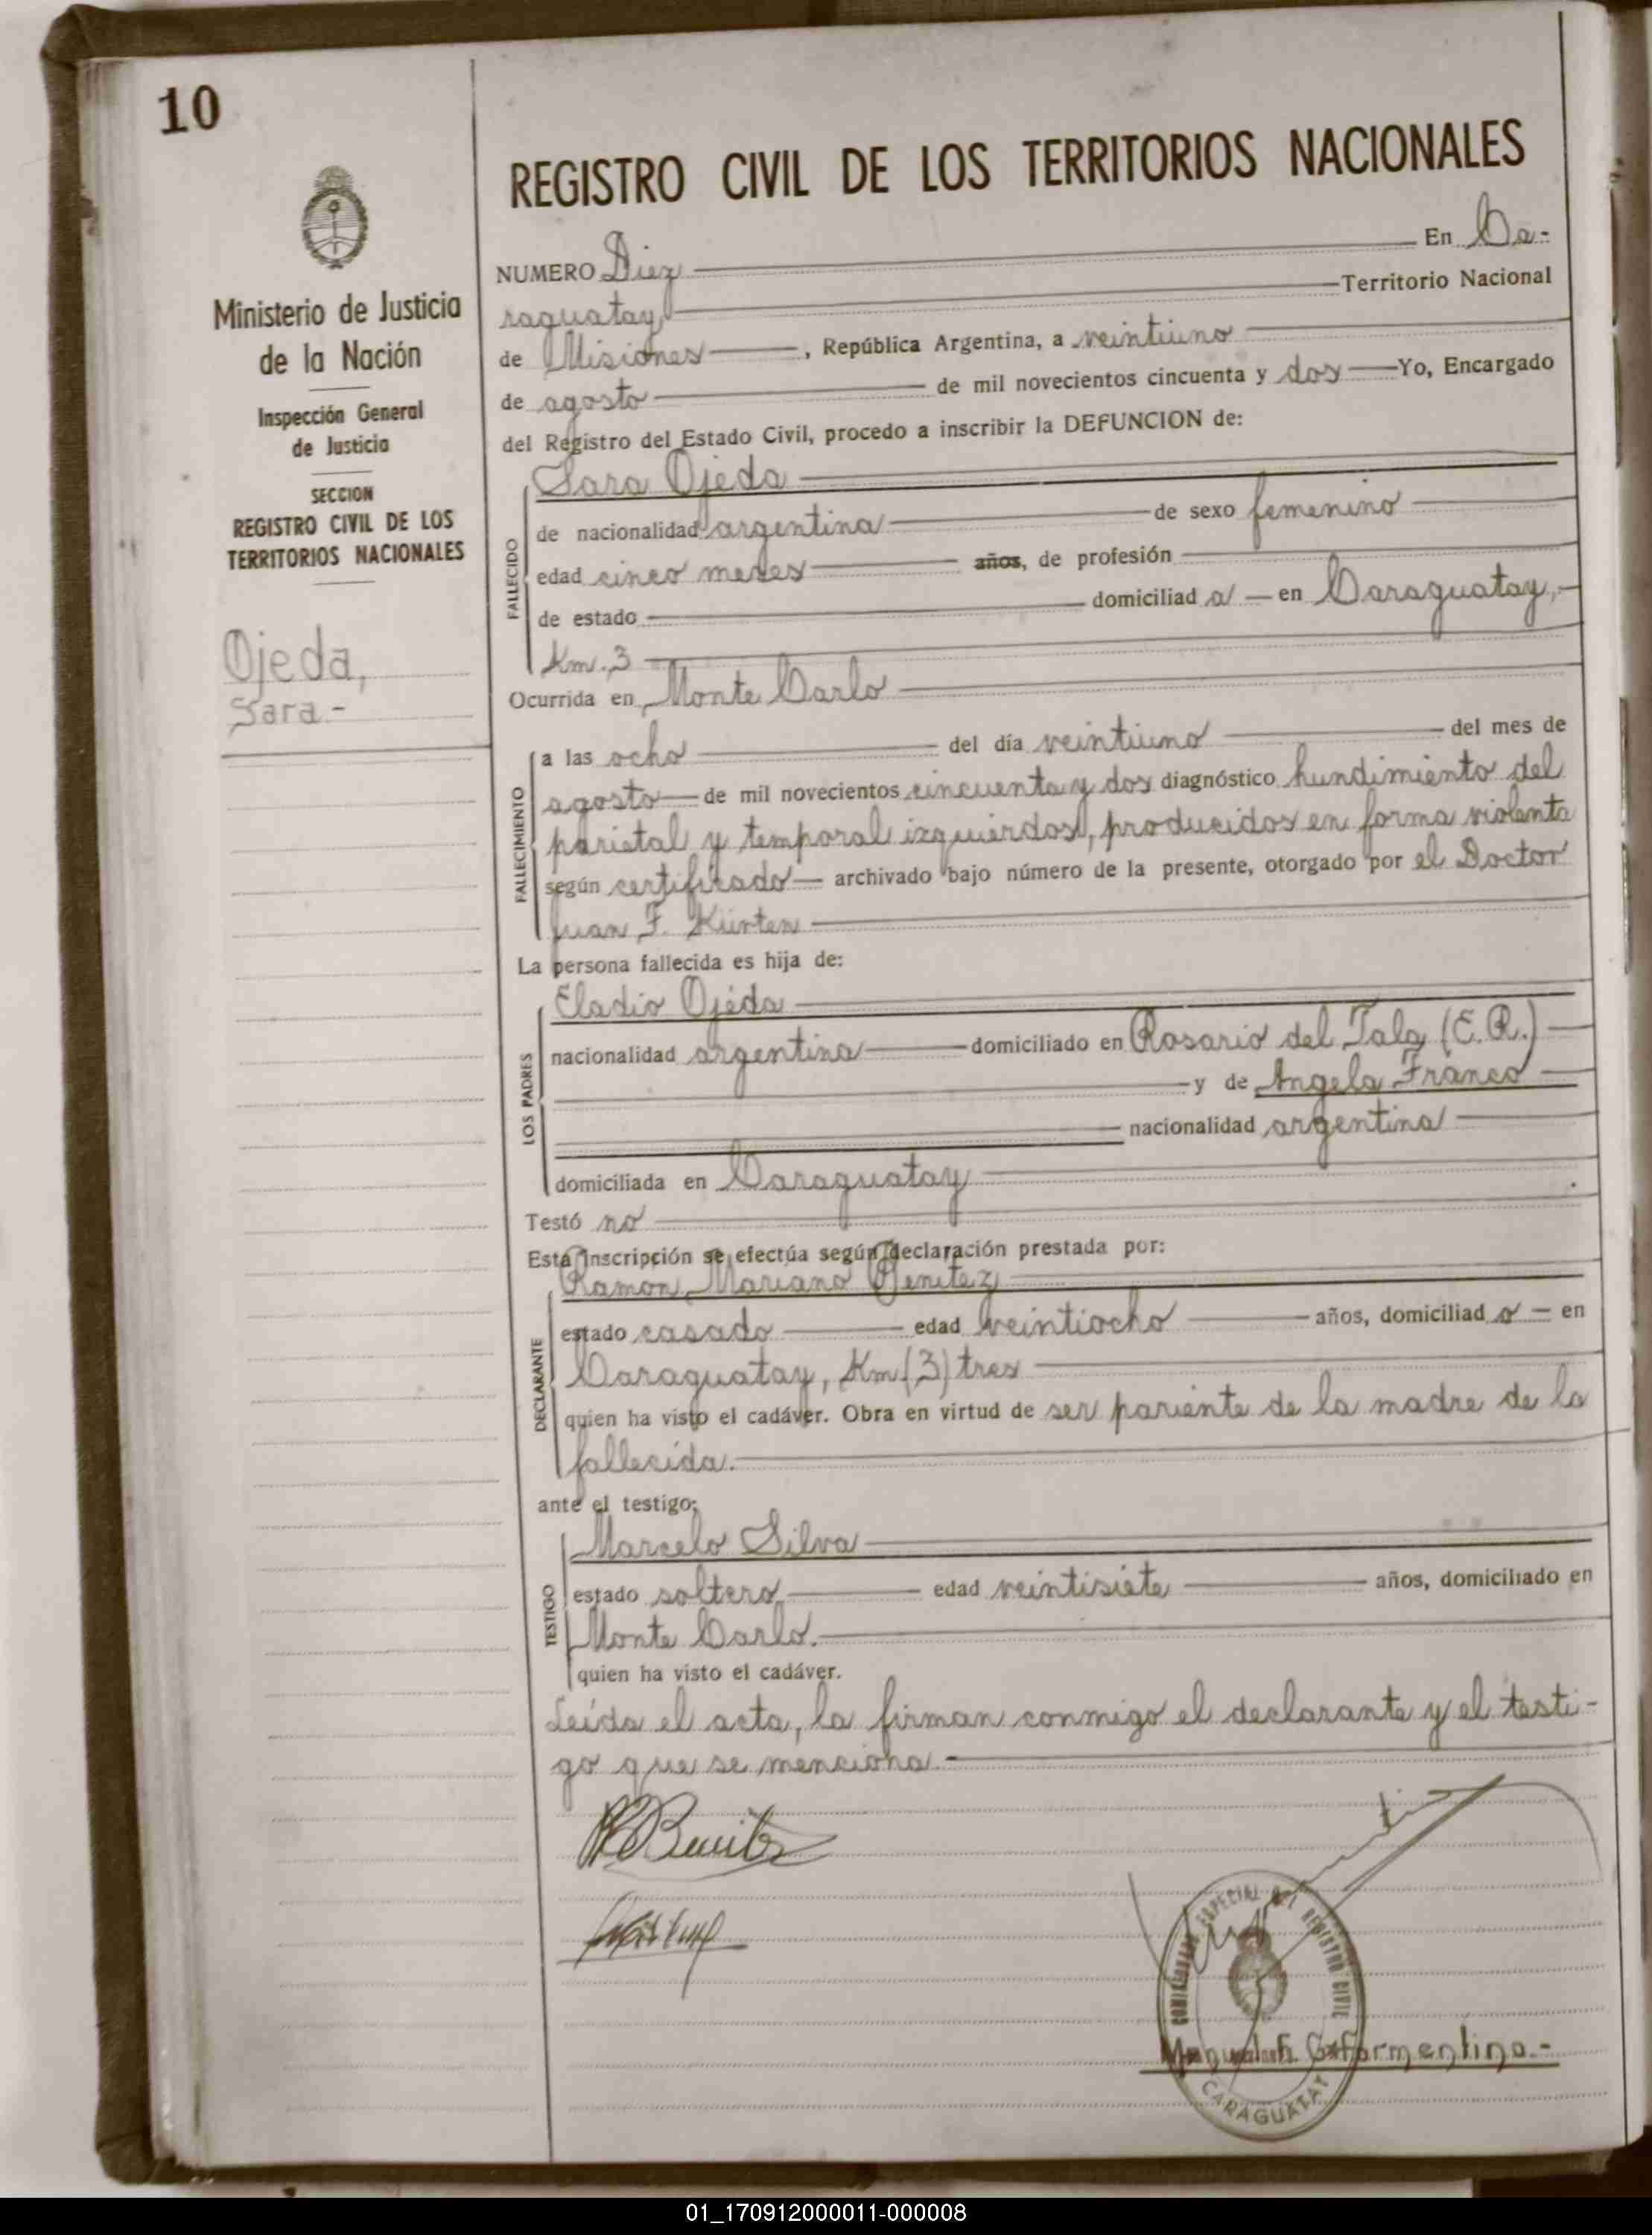 10
REGISTRO CIVIL DE LOS TERRITORIOS NACIONALES
Ministerio de Justicia
de la Nación
Inspección General
de Justicia
SECCION
REGISTRO CIVIL DE LOS
TERRITORIOS NACIONALES
Ojeda,
Sara.-
NUMERO Diez En Ca-
raguatay Territorio Nacional
de Misiones , República Argentina, a veintiuno
de agosto de mil novecientos cincuenta y dos Yo, Encargado
del Registro del Estado Civil, procedo a inscribir la DEFUNCION de:
FALLECIDO
Sara Ojeda
de nacionalidad argentina de sexo femenino
edad cinco meses años, de profesión
de estado domiciliad a en Caraguatay,
Km. 3
Ocurrida en Monte Carlo
FALLECIMIENTO
a las ocho del día veintiuno del mes de
agosto de mil novecientos cincuenta y dos diagnóstico hundimiento del
parietal y temporal izquierdos, producidos en forma violenta
según certificado archivado bajo número de la presente, otorgado por el Doctor
Juan F. Kürten
La persona fallecida es hija de:
LOS PADRES
Eladio Ojeda
nacionalidad argentina domiciliado en Rosario del Tala (E.R.)
y de Angela Franco
nacionalidad argentina
domiciliada en Caraguatay
Testó no
Esta inscripción se efectúa según declaración prestada por:
DECLARANTE
Ramon Mariano Benitez
estado casado edad veintiocho años, domiciliad o en
Caraguatay, Km (3) tres
quien ha visto el cadáver. Obra en virtud de ser pariente de la madre de la
fallecida.
ante el testigo;
TESTIGO
Marcelo Silva
estado soltero edad veintisiete años, domiciliado en
Monte Carlo.
quien ha visto el cadáver.
Leída el acta, la firman conmigo el declarante y el testi-
go que se menciona.
Benitez
ESPECIAL DEL REGISTRO CIVIL
CARAGUATAY
01_170912000011-000008